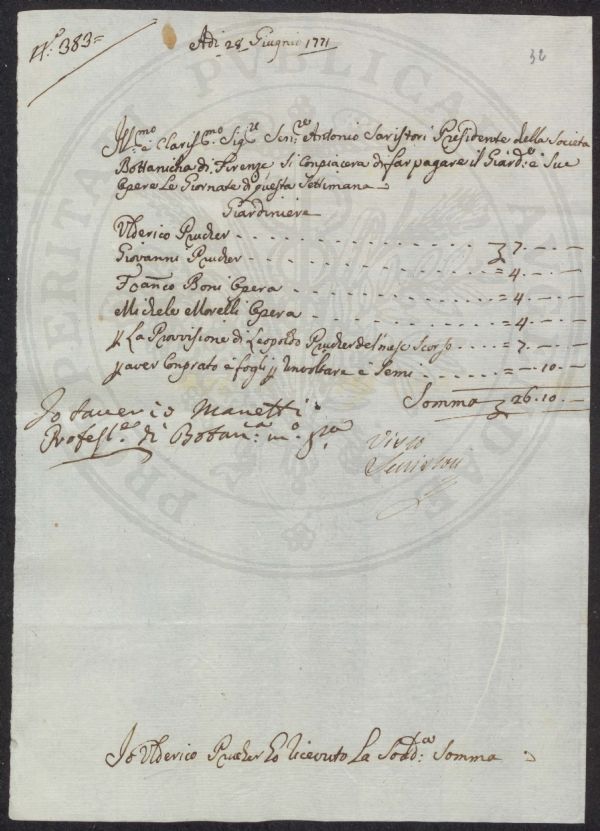 N.º 383=
Adi 28 Giugno 1771
32
Ill.mo e Clariss.mo Sig.re Sen.re Antonio Saristori Presidente della Societa
Bottanicha di Firenze si Conpiacera di far pagare il Giard.e e Sue
Opere Le Giornate di questa Settimana
Giardiniere
Ulderico Prucher - - - - 7 - -
Giovanni Prucher - - - - = 4 - -
Franco Boni Opera - - - - = 4 - -
Michele Morelli Opera - - - - = 4 - -
p La Provisione di Leopoldo Prucher del mese Scorso - - - = 7 - -
p aver Conprato e fogli p Involtare e Semi - - - = - 10 -
Somma 26 - 10 -
Io Saverio Manetti
Profess.re di Botan.ca m.o p.a
Visto
Seristori
Io Ulderico Prucher ho ricevuto La Sodd.ta Somma
PROSPERITATI PVBLICAE AVGENDAE